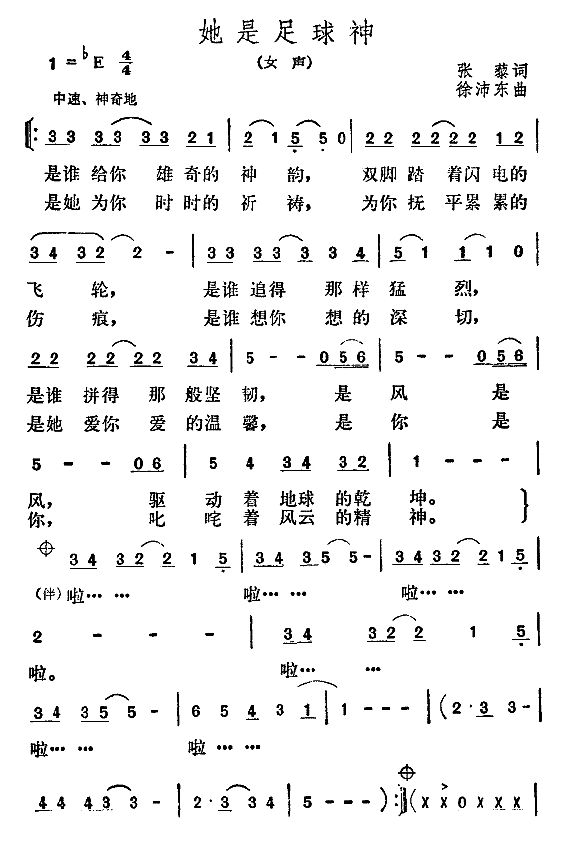 她是足球神
1=♭E 4/4
(女声)
张藜词
徐沛东曲
中速、神奇地
‖: 33 33 33 21 | 2 1 5 50 | 22 22 22 12 |
是谁给你 雄奇的 神 韵, 双脚 踏 着闪 电的
是她为你 时时的 祈 祷, 为你 抚 平累 累的
34 32 2 - | 33 33 32 34 | 5 1 1 1 0 |
飞 轮, 是谁 追得 那样 猛 烈,
伤 痕, 是谁 想你 想的 深 切,
22 22 22 34 | 5 - - 056 | 5 - - 056 |
是谁 拼得 那 般坚 韧, 是 风 是
是她 爱你 爱 的温 馨, 是 你 是
5 - - 06 | 5 4 34 32 | 1 - - - |
风, 驱 动 着 地球 的乾 坤。
你, 叱 咤 着 风云 的精 神。
34 32 2 1 5 | 34 35 5 - | 34 32 2 1 5 |
(伴) 啦…… …… 啦…… …… 啦…… ……
2 - - - | 34 32 2 1 5 |
啦。 啦…… ……
34 35 5 - | 6 5 4 3 1 | 1 - - - | (2·3 3 - |
啦…… …… 啦…… ……
44 43 3 - | 2·3 34 | 5 - - - ) :‖ (X X O X X X |